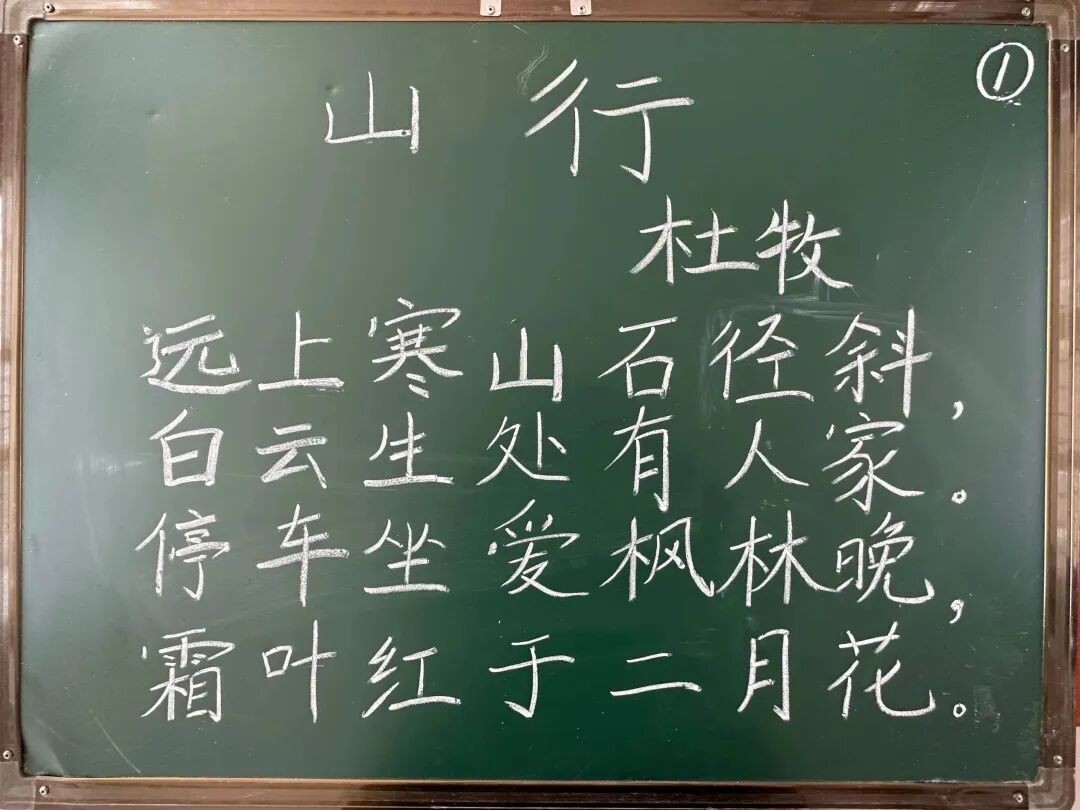 ①
山行
杜牧
远上寒山石径斜，
白云生处有人家。
停车坐爱枫林晚，
霜叶红于二月花。